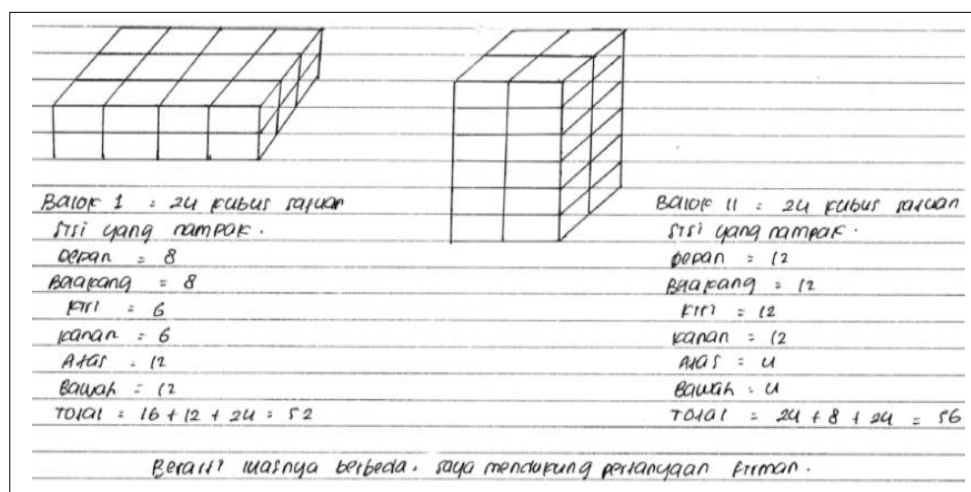 Balok 1 : 24 kubus satuan
sisi yang nampak.
Depan = 8
Belakang = 8
Kiri = 6
Kanan = 6
Atas = 12
Bawah = 12
Total = 16 + 12 + 24 = 52
Balok II : 24 kubus satuan
sisi yang nampak.
Depan = 12
Belakang = 12
Kiri = 12
Kanan = 12
Atas = 4
Bawah = 4
Total = 24 + 8 + 24 = 56
Berarti luasnya berbeda. saya mendukung pertanyaan Firman.